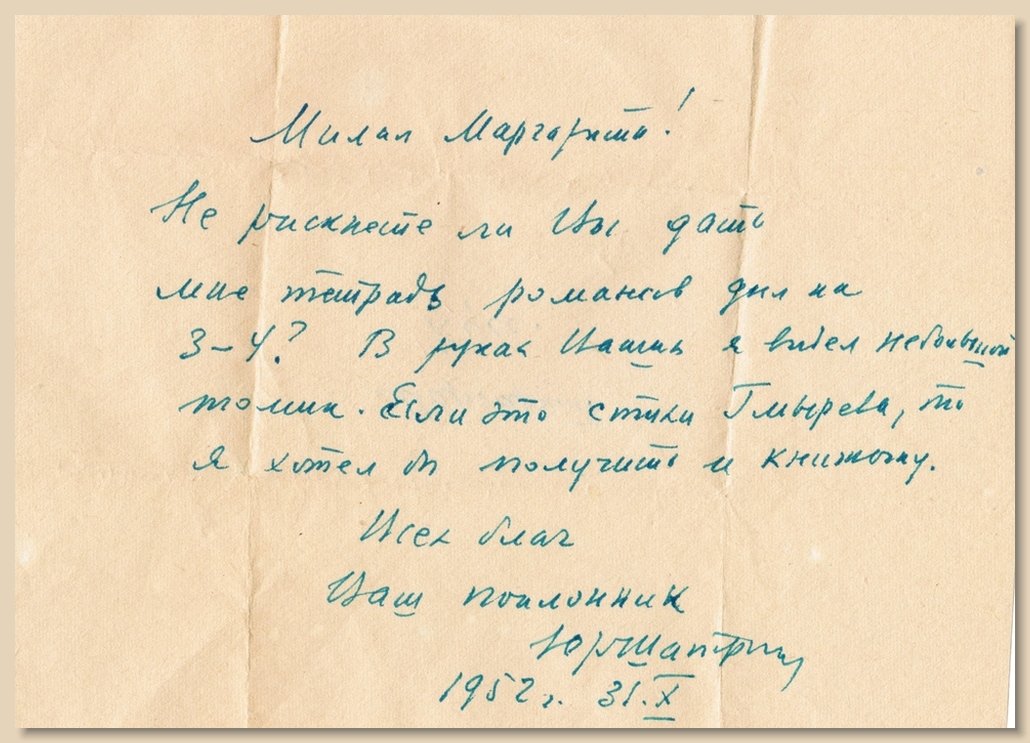 Милая Маргарита!
Не рискнете ли Вы дать
мне тетрадь романсов дня на
3–4? В руках Ваших я видел небольшой
томик. Если это стихи Гмырева, то
я хотел бы получить и книжечку.
Всех благ
Ваш поклонник
1952 г. 31.X